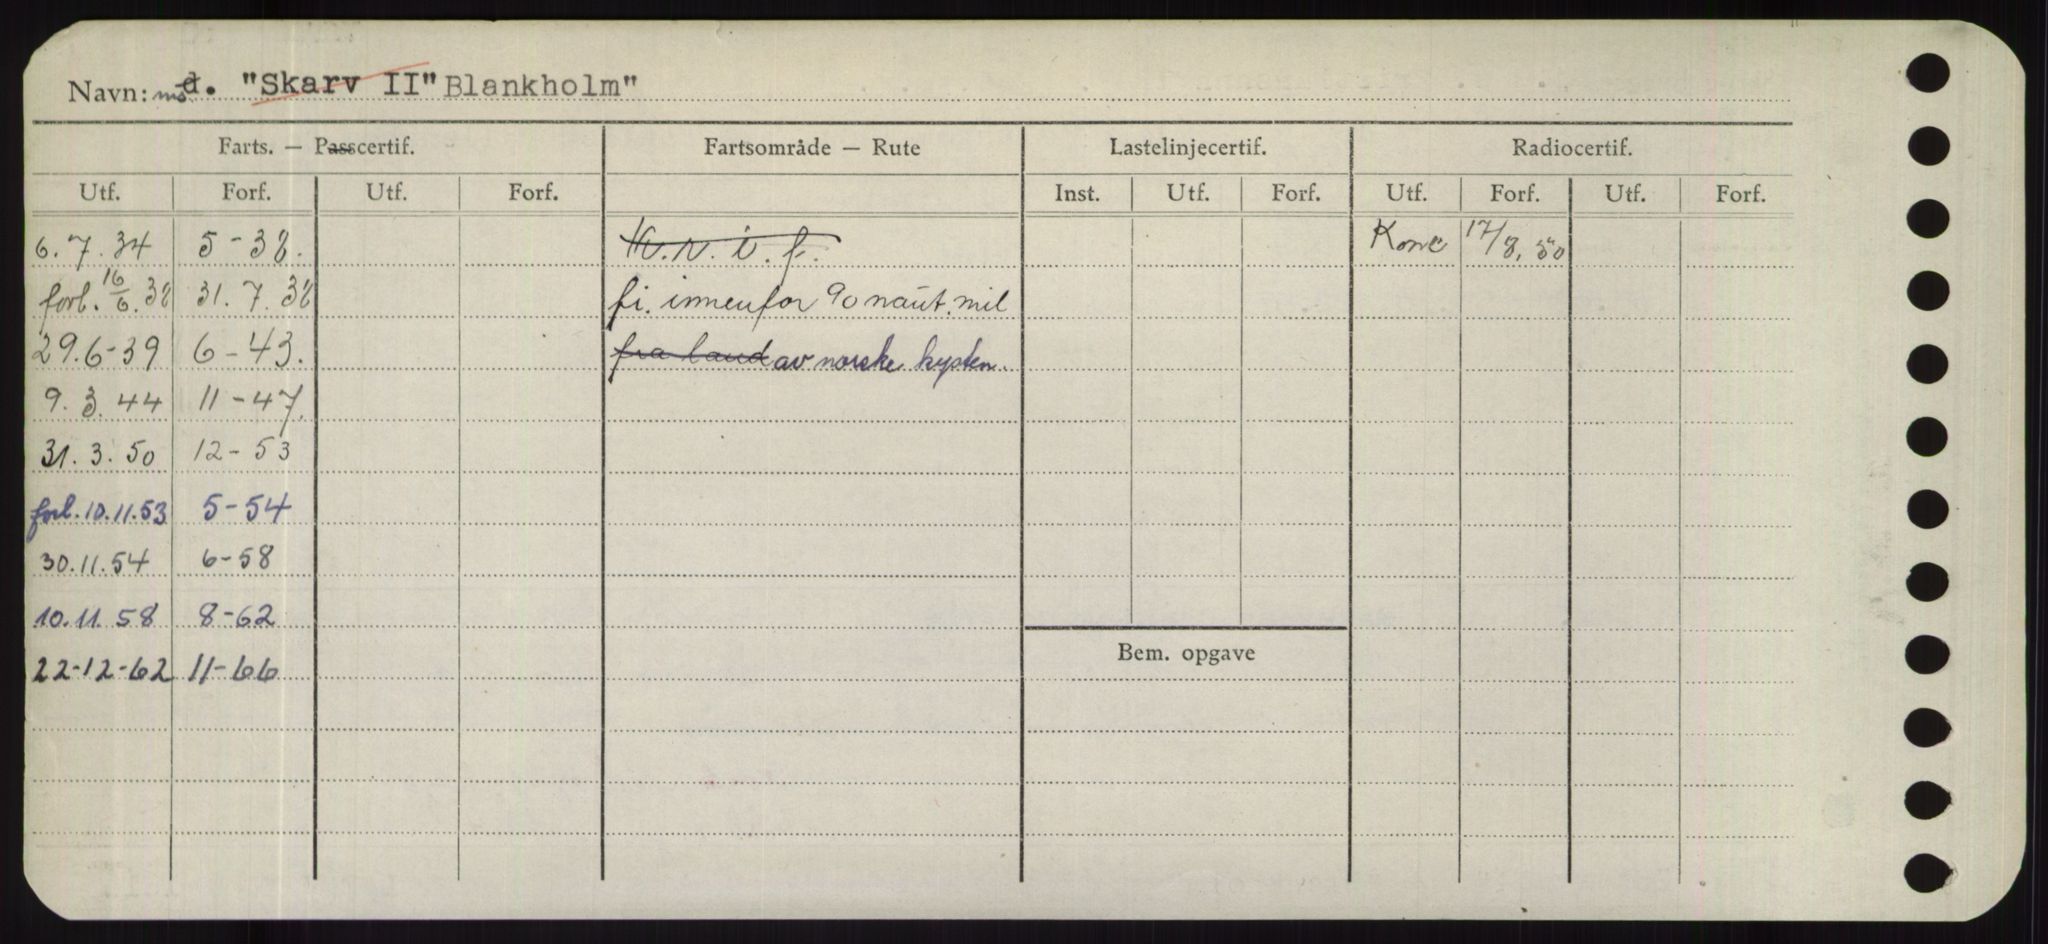 Navn: d. "Skarv II" Blankholm"
Farts. — Passcertif. Fartsområde — Rute Lastelinjecertif. Radiocertif.
Utf. Forf. Utf. Forf. Inst. Utf. Forf. Utf. Forf. Utf. Forf.
6.7.34 5-38. i.f. 17/8, 50
forl. 16/6.38 31.7.38 fi. innenfor 90 naut. mil
29.6-39 6-43. fra land av norske kysten.
9.3.44 11-47.
31.3.50 12-53
forl. 10.11.53 5-54
30.11.54 6-58
10.11.58 8-62
Bem. opgave
22-12-62 11-66